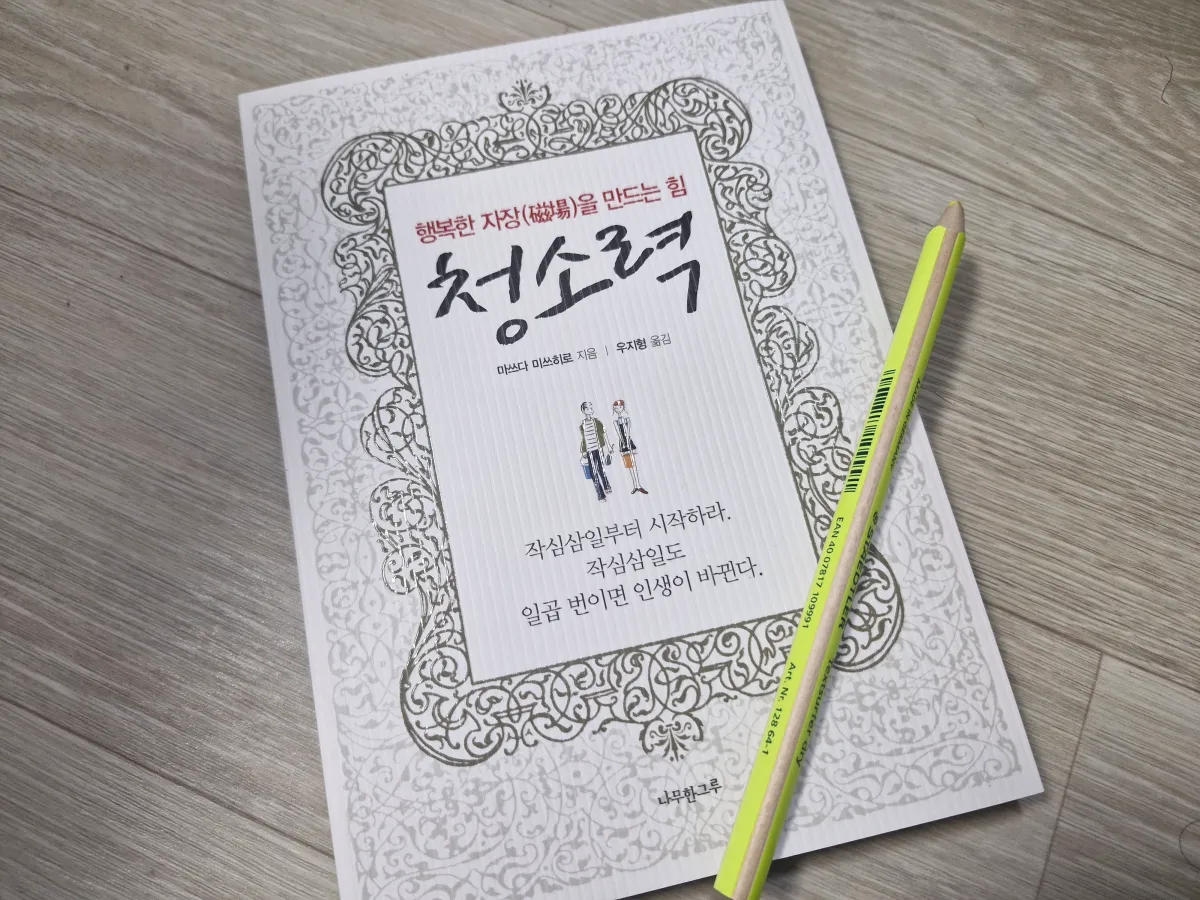 행복한 자장(磁場)을 만드는 힘
청소력
마쓰다 미쓰히로 지음 | 우지형 옮김
작심삼일부터 시작하라.
작심삼일도
일곱 번이면 인생이 바뀐다.
나무한그루
EAN 40 07817 109991
STAEDTLER textsurfer dry
Art. Nr. 128 64-1